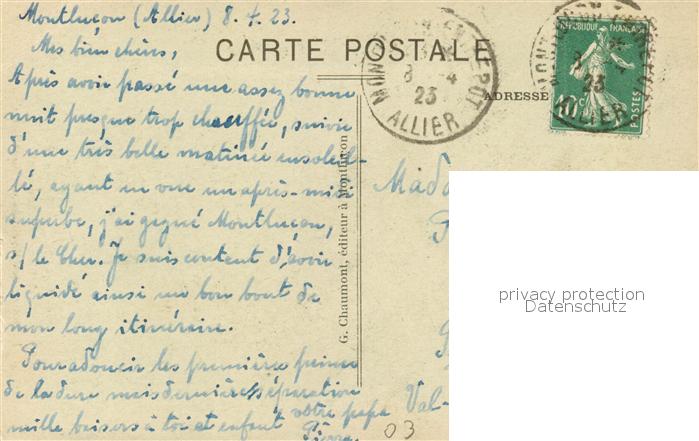 Montluçon (Allier) 8.4.23.
Mes bien chères,
CARTE POSTALE
Après avoir passé une assez bonne
nuit presque trop chauffée, suivie
d'une très belle matinée ensoleil-
lé, ayant en vue un après-midi
superbe, j'ai gagné Montluçon,
s/ le Cher. Je suis content d'avoir
liquidé ainsi un bon bout de
mon long itinéraire.
Pour adoucir les premières peines
de la dure mais dernière séparation
mille baisers à toi et enfant
votre papa
Pierre
G. Chaumont, éditeur à Montluçon
ADRESSE
MONTLUÇON ENTREPOT
8 - 4
23
ALLIER
REPUBLIQUE FRANÇAISE
10c
POSTES
8 4
23
ALLIER
Mada
Val-
03
privacy protection
Datenschutz